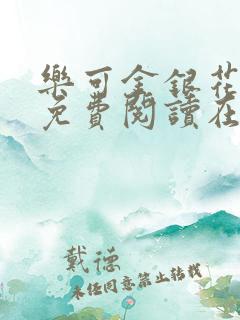 樂可金銀花
免費閱讀在
戴德
未經同意禁止轉載